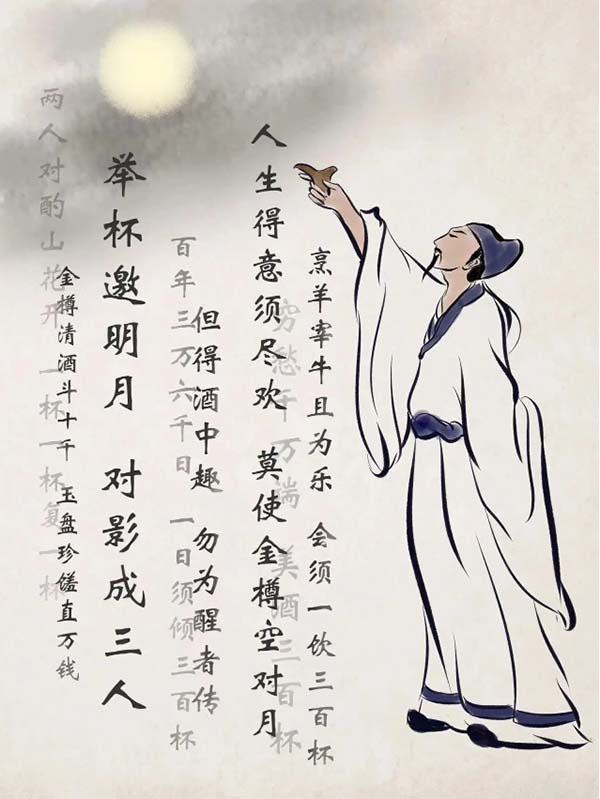 烹羊宰牛且为乐 会须一饮三百杯
穷愁千万湍 美酒三百杯
人生得意须尽欢 莫使金樽空对月
但得酒中趣 勿为醒者传
百年三万六千日 一日须倾三百杯
举杯邀明月 对影成三人
金樽清酒斗十千 玉盘珍馐直万钱
两人对酌山花开 一杯一杯复一杯